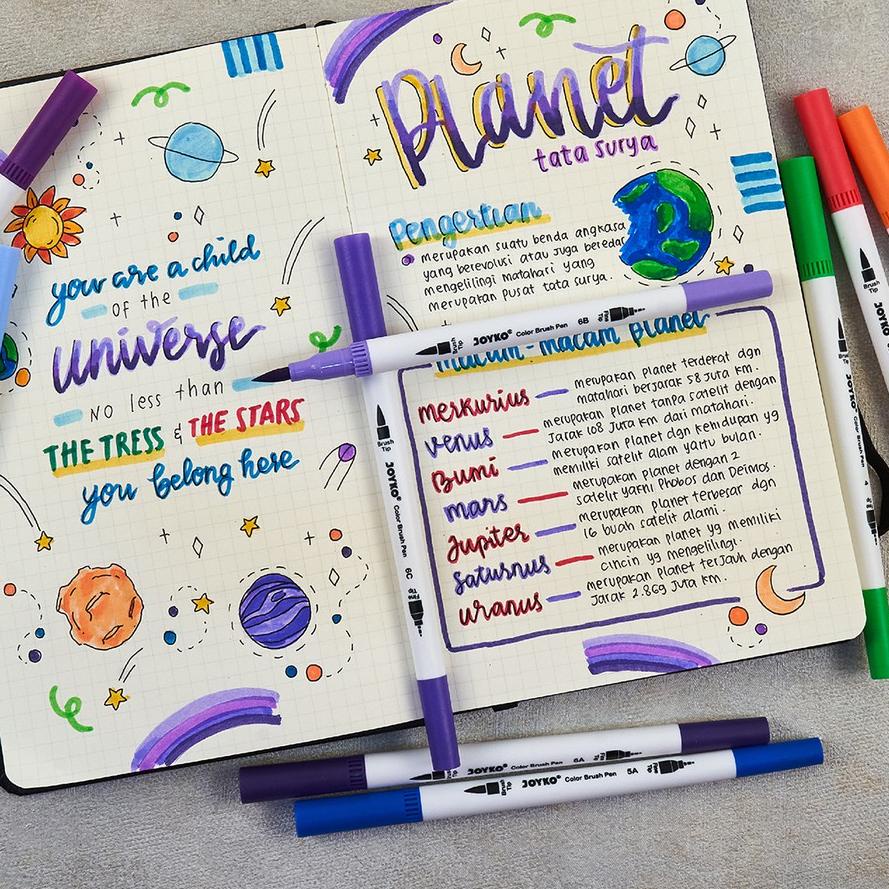 you are a child
of the
universe
no less than
THE TRESS & THE STARS
you belong here
Planet
tata surya
Pengertian
merupakan suatu benda angkasa
yang berevolusi atau juga beredar
mengelilingi matahari yang
merupakan pusat tata surya.
macam-macam planet
merkurius — merupakan planet terdekat dgn
matahari berjarak 58 juta km.
venus — merupakan planet tanpa satelit dengan
jarak 108 juta km dari matahari.
Bumi — merupakan planet dgn kehidupan yg
memiliki satelit alam yaitu bulan.
mars — merupakan planet dengan 2
satelit yakni Phobos dan Deimos.
Jupiter — merupakan planet terbesar dgn
16 buah satelit alami.
saturnus — merupakan planet yg memiliki
cincin yg mengelilingi.
uranus — merupakan planet terjauh dengan
jarak 2.869 juta km.
Brush Tip JOYKO Color Brush Pen 6B Fine Tip
Brush Tip JOYKO Color Brush Pen 6C Fine Tip
JOYKO Color Brush Pen 6A Fine Tip
Brush Tip JOYKO Color Brush Pen 5A Fine Tip
Brush Tip JOYKO Color
Brush Tip